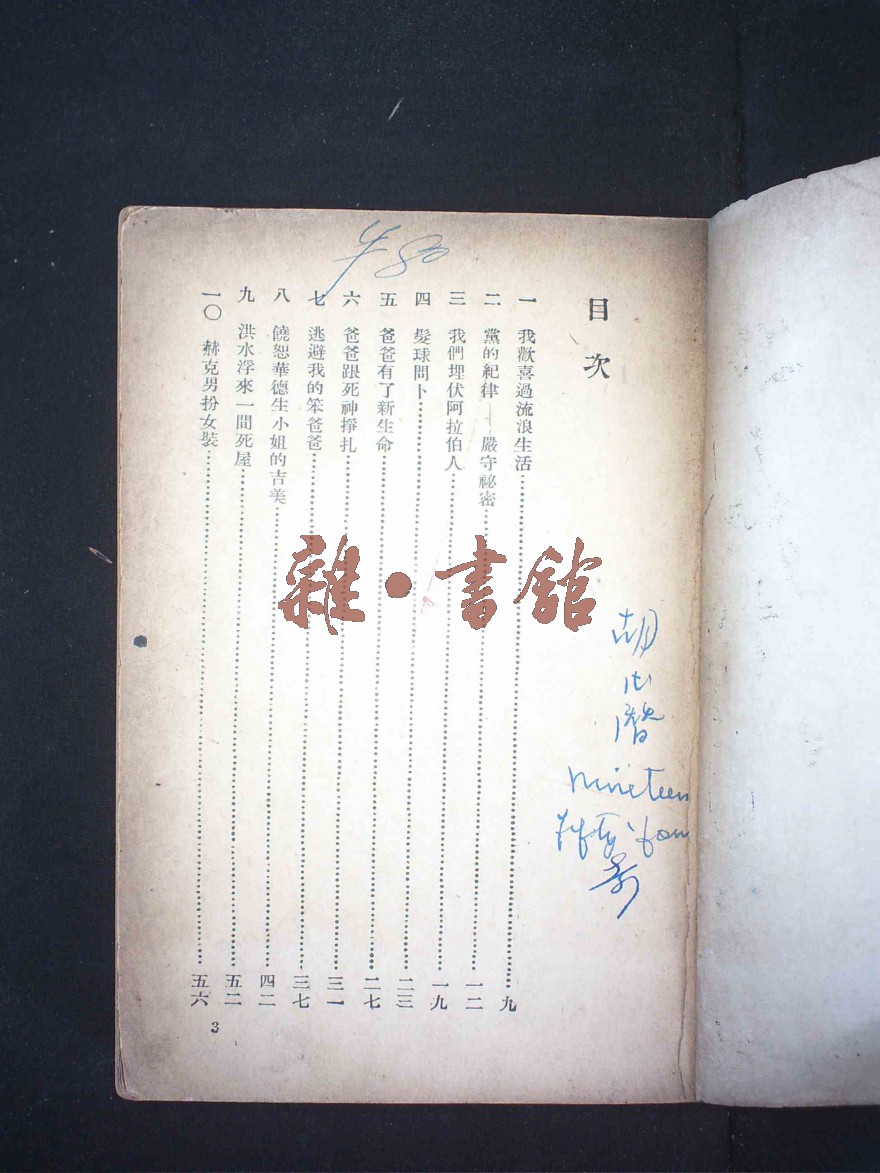 目次
一 我歡喜過流浪生活……九
二 黨的紀律——嚴守祕密……一二
三 我們埋伏阿拉伯人……一九
四 髮球問卜……二三
五 爸爸有了新生命……二七
六 爸爸跟死神掙扎……三一
七 逃避我的笨爸爸……三七
八 饒恕華德生小姐的吉美……四二
九 洪水浮來一間死屋……五二
一〇 赫克男扮女裝……五六
3
雜·書館
nineteen